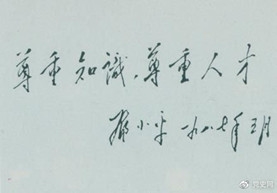 尊重知識，尊重人才
邓小平 一九八七年月